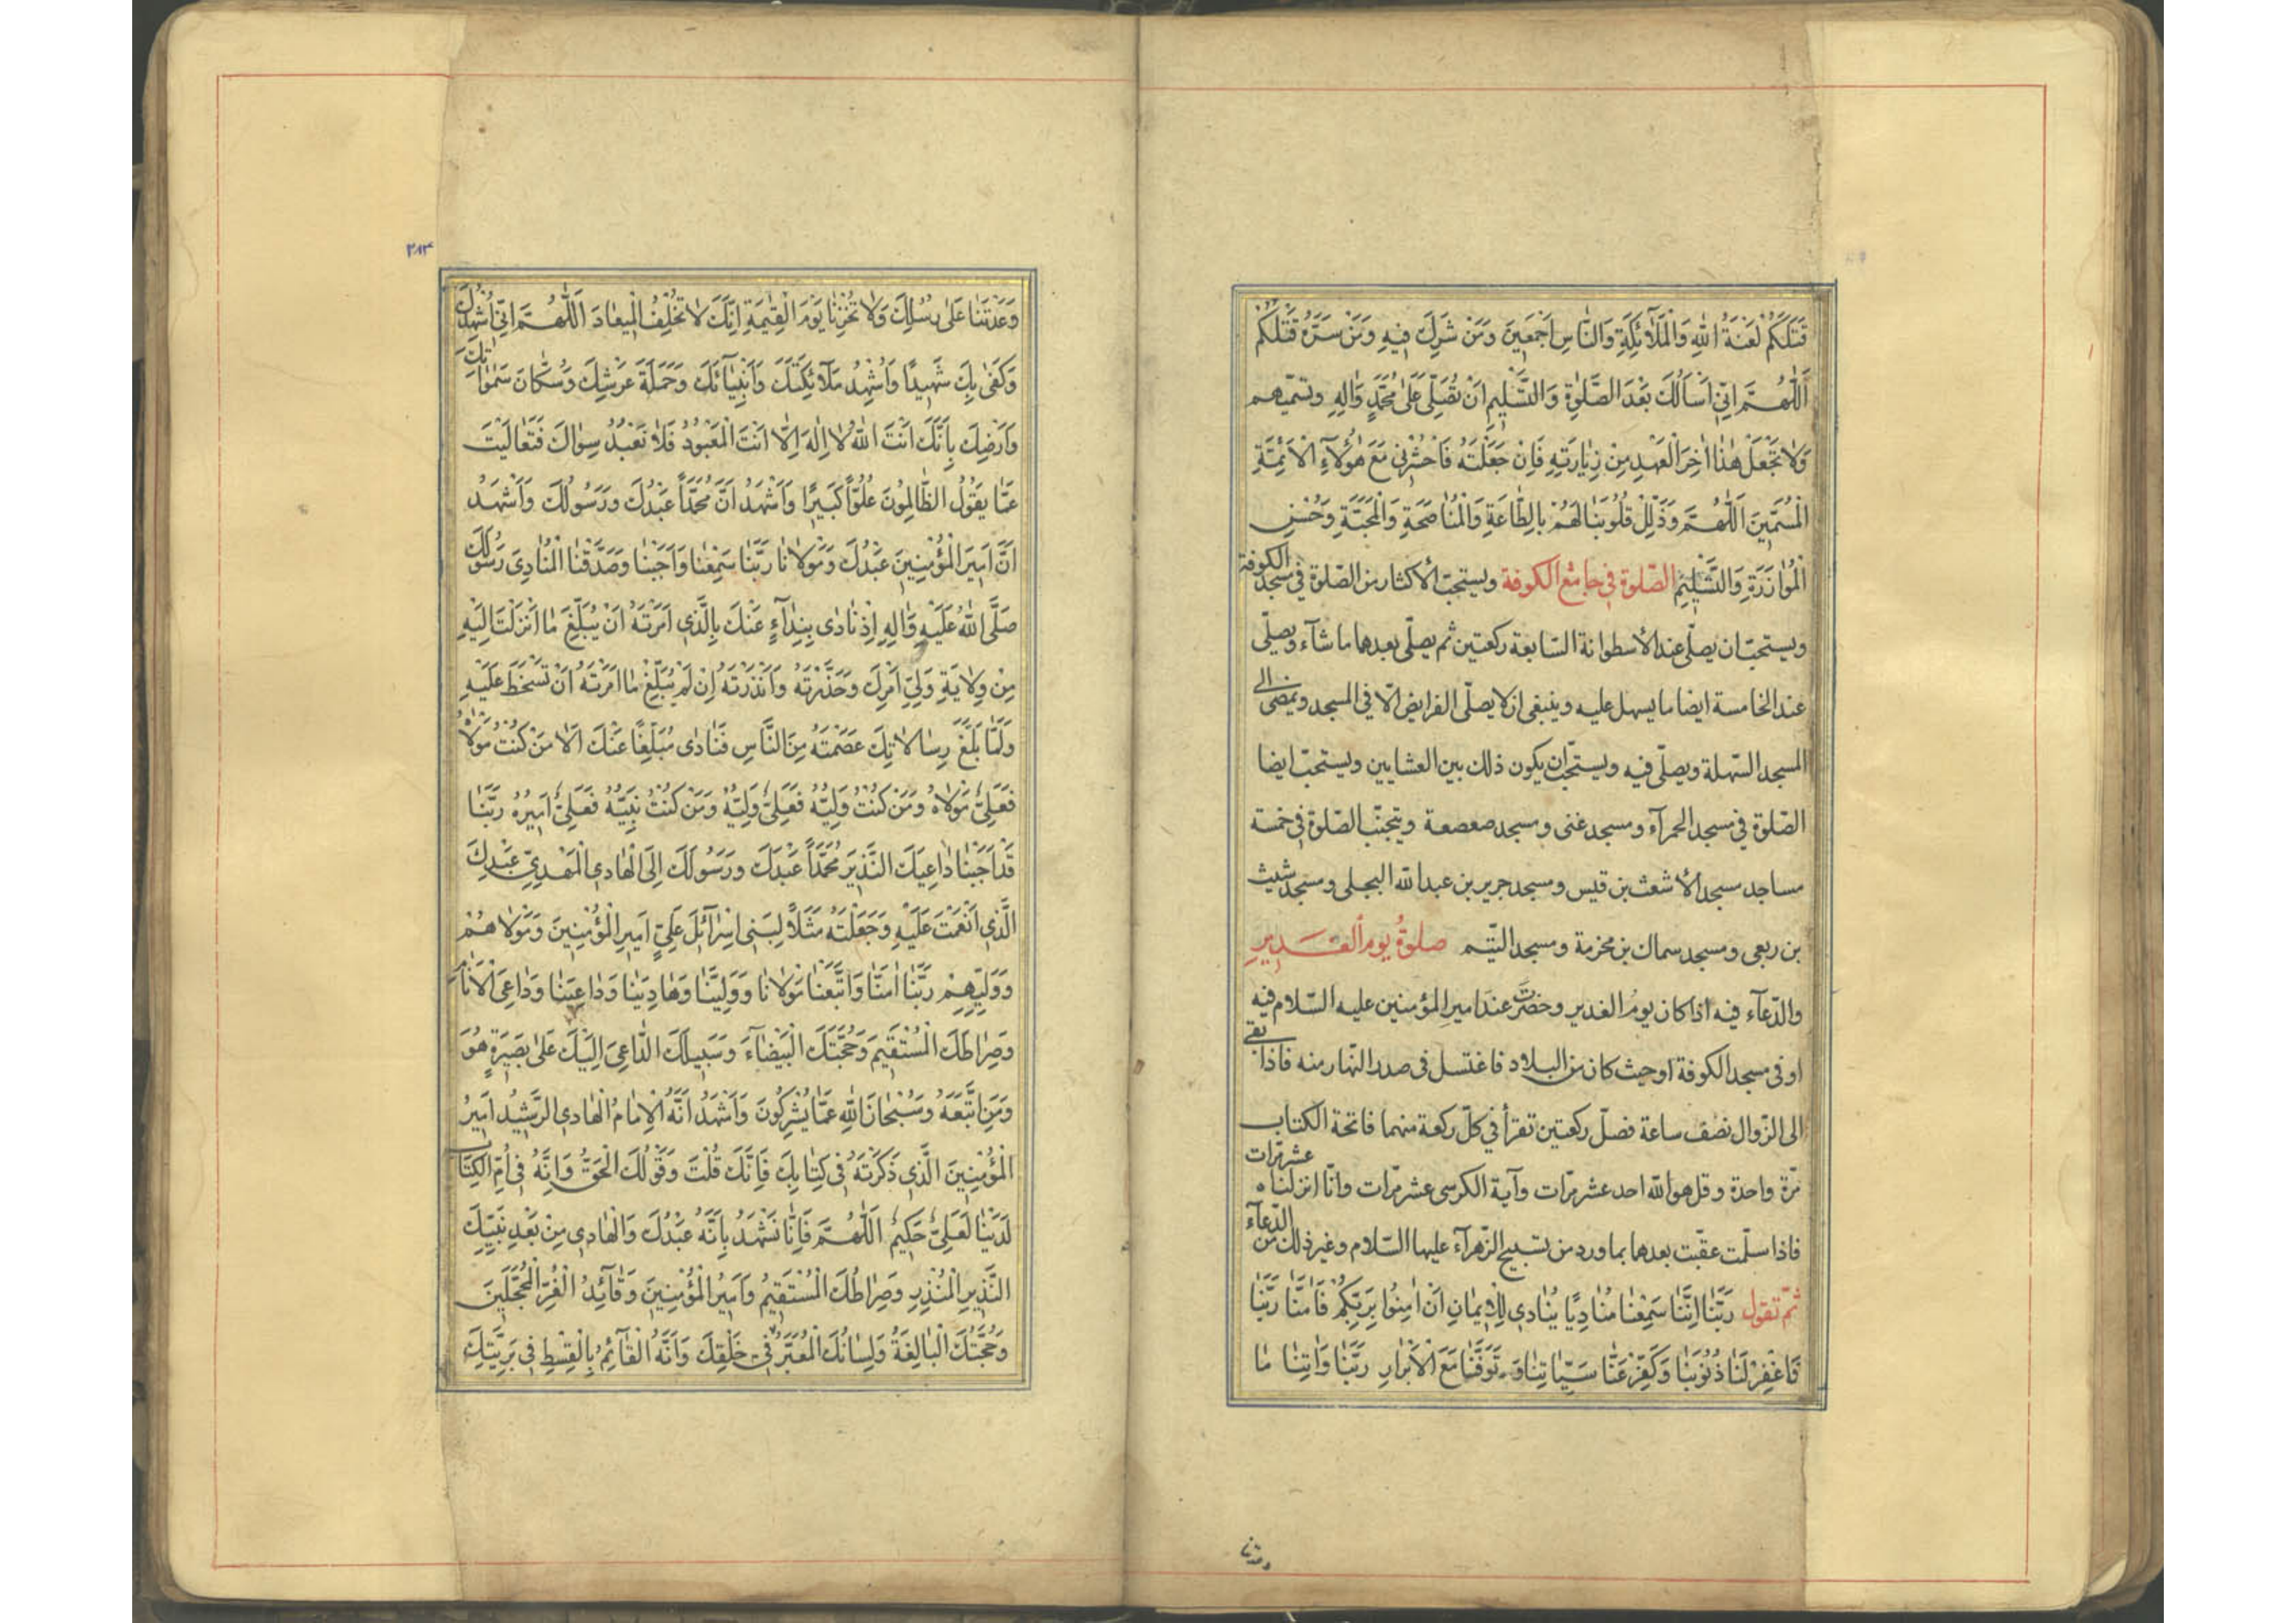 قَتَلَكُمْ لَعْنَةُ اللهِ وَالْمَلٰٓائِكَةِ وَالنّٰاسِ اَجْمَعِينَ وَمَنْ شَرِكَ فِيهِ وَمَنْ سَرَّهُ قَتْلُكُمْ
اَللّٰهُمَّ اِنِّي اَسْاَلُكَ بَعْدَ الصَّلٰوةِ وَالتَّسْلِيمِ اَنْ تُصَلِّيَ عَلٰى مُحَمَّدٍ وَاٰلِهِ وتسمّيهم
وَلٰا تَجْعَلْ هٰذٰا اٰخِرَ الْعَهْدِ مِنْ زِيٰارَتِهِ فَاِنْ جَعَلْتَهُ فَاحْشُرْنِي مَعَ هٰؤُلٰٓاءِ الْاَئِمَّةِ
الْمُسَمَّيْنَ اَللّٰهُمَّ وَذَلِّلْ قُلُوبَنٰا لَهُمْ بِالطّٰاعَةِ وَالْمُنٰاصَحَةِ وَالْمَحَبَّةِ وَحُسْنِ
الْمُوٰازَرَةِ وَالتَّسْلِيمِ الصّلوة في جامع الكوفة ويستحبّ الأكثار من الصّلوة في مسجد الكوفة
ويستحبّ ان يصلّي عند الأسطوانة السّابعة ركعتين ثم يصلّي بعدها ما شآء ويصلّي
عند الخامسة ايضا ما يسهل عليه وينبغي ان لا يصلّي الفرايض الّا في المسجد ويمضي الى
المسجد السّهلة ويصلّي فيه ويستحبّ ان يكون ذلك بين العشايين ويستحبّ ايضا
الصّلوة في مسجد الحمرآء ومسجد غنى ومسجد صعصعة ويتجنّب الصّلوة في خمسة
مساجد مسجد الأشعث بن قيس ومسجد جرير بن عبد الله البجلي ومسجد شيث
بن ربعي ومسجد سماك بن مخرمة ومسجد التّيم صلوةُ يوم الغدير
والدّعآء فيه اذا كان يومُ الغدير وحضرتَ عند امير المؤمنين عليه السّلام فيه
او في مسجد الكوفة او حيث كان من البلاد فاغتسل في صدر النّهار منه فاذا بقى
الى الزّوال نصف ساعة فصلّ ركعتين تقرأ في كلّ ركعة منهما فاتحة الكتاب
مرّة واحدة وقل هو الله احد عشر مرّات وآية الكرسي عشر مرّات وانّا انزلناه عشر مرّات
فاذا سلّمت عقّبت بعدها بما ورد من تسبيح الزّهرآء عليها السّلام وغير ذلك من الدّعآء
ثمّ تقول رَبَّنٰا اِنَّنٰا سَمِعْنٰا مُنٰادِيًا يُنٰادِي لِلْاِيمٰانِ اَنْ اٰمِنُوا بِرَبِّكُمْ فَاٰمَنّٰا رَبَّنٰا
فَاغْفِرْ لَنٰا ذُنُوبَنٰا وَكَفِّرْ عَنّٰا سَيِّئٰاتِنٰا وَتَوَفَّنٰا مَعَ الْاَبْرٰارِ رَبَّنٰا وَاٰتِنٰا مٰا
وعدتنا
٢٨٣
وَعَدْتَنٰا عَلٰى رُسُلِكَ وَلٰا تُخْزِنٰا يَوْمَ الْقِيٰمَةِ اِنَّكَ لٰا تُخْلِفُ الْمِيعٰادَ اَللّٰهُمَّ اِنِّي اُشْهِدُكَ
وَكَفٰى بِكَ شَهِيدًا وَاُشْهِدُ مَلٰٓائِكَتَكَ وَاَنْبِيٰآئَكَ وَحَمَلَةَ عَرْشِكَ وَسُكّٰانَ سَمٰوٰاتِكَ
وَاَرْضِكَ بِاَنَّكَ اَنْتَ اللهُ لٰا اِلٰهَ اِلّٰا اَنْتَ الْمَعْبُودُ فَلٰا نَعْبُدُ سِوٰاكَ فَتَعٰالَيْتَ
عَمّٰا يَقُولُ الظّٰالِمُونَ عُلُوًّا كَبِيرًا وَاَشْهَدُ اَنَّ مُحَمَّدًا عَبْدُكَ وَرَسُولُكَ وَاَشْهَدُ
اَنَّ اَمِيرَ الْمُؤْمِنِينَ عَبْدُكَ وَمَوْلٰانٰا رَبَّنٰا سَمِعْنٰا وَاَجَبْنٰا وَصَدَّقْنَا الْمُنٰادِيَ رَسُولَكَ
صَلَّى اللهُ عَلَيْهِ وَاٰلِهِ اِذْ نٰادٰى بِنِدٰآءٍ عَنْكَ بِالَّذِي اَمَرْتَهُ اَنْ يُبَلِّغَ مٰا اَنْزَلْتَ اِلَيْهِ
مِنْ وِلٰايَةِ وَلِيِّ اَمْرِكَ وَحَذَّرْتَهُ وَاَنْذَرْتَهُ اِنْ لَمْ يُبَلِّغْ مٰا اَمَرْتَهُ اَنْ تَسْخَطَ عَلَيْهِ
وَلَمّٰا بَلَّغَ رِسٰالٰاتِكَ عَصَمْتَهُ مِنَ النّٰاسِ فَنٰادٰى مُبَلِّغًا عَنْكَ اَلٰا مَنْ كُنْتُ مَوْلٰاهُ
فَعَلِيٌّ مَوْلٰاهُ وَمَنْ كُنْتُ وَلِيَّهُ فَعَلِيٌّ وَلِيُّهُ وَمَنْ كُنْتُ نَبِيَّهُ فَعَلِيٌّ اَمِيرُهُ رَبَّنٰا
قَدْ اَجَبْنٰا دٰاعِيَكَ النَّذِيرَ مُحَمَّدًا عَبْدَكَ وَرَسُولَكَ اِلَى الْهٰادِي الْمَهْدِيِّ عَبْدِكَ
الَّذِي اَنْعَمْتَ عَلَيْهِ وَجَعَلْتَهُ مَثَلًا لِبَنِي اِسْرٰآئِلَ عَلِيٍّ اَمِيرِ الْمُؤْمِنِينَ وَمَوْلٰاهُمْ
وَوَلِيِّهِمْ رَبَّنٰا اٰمَنّٰا وَاتَّبَعْنٰا مَوْلٰانٰا وَوَلِيَّنٰا وَهٰادِيَنٰا وَدٰاعِيَنٰا وَدٰاعِيَ الْاَنٰامِ
وَصِرٰاطَكَ الْمُسْتَقِيمَ وَحُجَّتَكَ الْبَيْضٰآءَ وَسَبِيلَكَ الدّٰاعِيَ اِلَيْكَ عَلٰى بَصِيرَةٍ هُوَ
وَمَنِ اتَّبَعَهُ وَسُبْحٰانَ اللهِ عَمّٰا يُشْرِكُونَ وَاَشْهَدُ اَنَّهُ الْاِمٰامُ الْهٰادِي الرَّشِيدُ اَمِيرُ
الْمُؤْمِنِينَ الَّذِي ذَكَرْتَهُ فِي كِتٰابِكَ فَاِنَّكَ قُلْتَ وَقَوْلُكَ الْحَقُّ وَاِنَّهُ فِي اُمِّ الْكِتٰابِ
لَدَيْنٰا لَعَلِيٌّ حَكِيمٌ اَللّٰهُمَّ فَاِنّٰا نَشْهَدُ بِاَنَّهُ عَبْدُكَ وَالْهٰادِي مِنْ بَعْدِ نَبِيِّكَ
النَّذِيرِ الْمُنْذِرِ وَصِرٰاطُكَ الْمُسْتَقِيمُ وَاَمِيرُ الْمُؤْمِنِينَ وَقٰآئِدُ الْغُرِّ الْمُحَجَّلِينَ
وَحُجَّتُكَ الْبٰالِغَةُ وَلِسٰانُكَ الْمُعَبِّرُ فِي خَلْقِكَ وَاَنَّهُ الْقٰآئِمُ بِالْقِسْطِ فِي بَرِيَّتِكَ